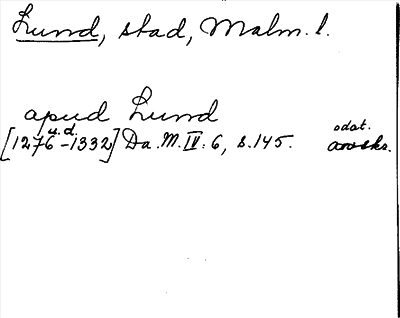 Lund, stad, Malm. l.
apud Lund
u. d. odat.
[1276-1332] Da. M. IV: 6, s. 145. avskr.